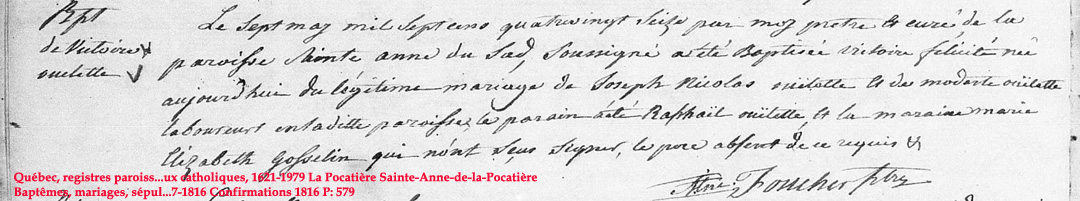 Bpt
de Victoire
ouelette
Le Sept may mil Sept cens quatrevingt Seize par moy pretre et curé de la
paroisse Sainte anne du Sud, Soussigné a été Baptisée victoire félicité née
aujourd'hui du légitime mariage de Joseph Nicolas ouélette et de modeste ouëlette
laboureurs en laditte paroisse, le parain a été Raphaël ouëlette, et la maraine marie
Elizabeth Gosselin qui n'ont Seus Signer, le pere absent de ce requis
Foucher ptre
Québec, registres paroiss...ux catholiques, 1621-1979 La Pocatière Sainte-Anne-de-la-Pocatière
Baptêmes, mariages, sépul...7-1816 Confirmations 1816 P: 579